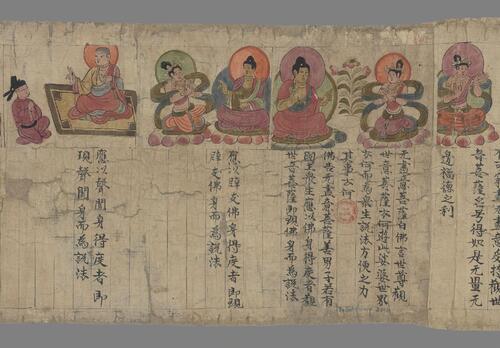 意受持觀世
音菩薩名号得如是无量无
邊福德之利
无盡意菩薩白佛言世尊觀
世音菩薩云何遊此娑婆世界
云何而為衆生說法方便之力
其事云何
佛告无盡意菩薩善男子若有
國土衆生應以佛身得度者觀
世音菩薩即現佛身而為說法
應以辟支佛身得度者即現
辟支佛身而為說法
應以聲聞身得度者即
現聲聞身而為說法